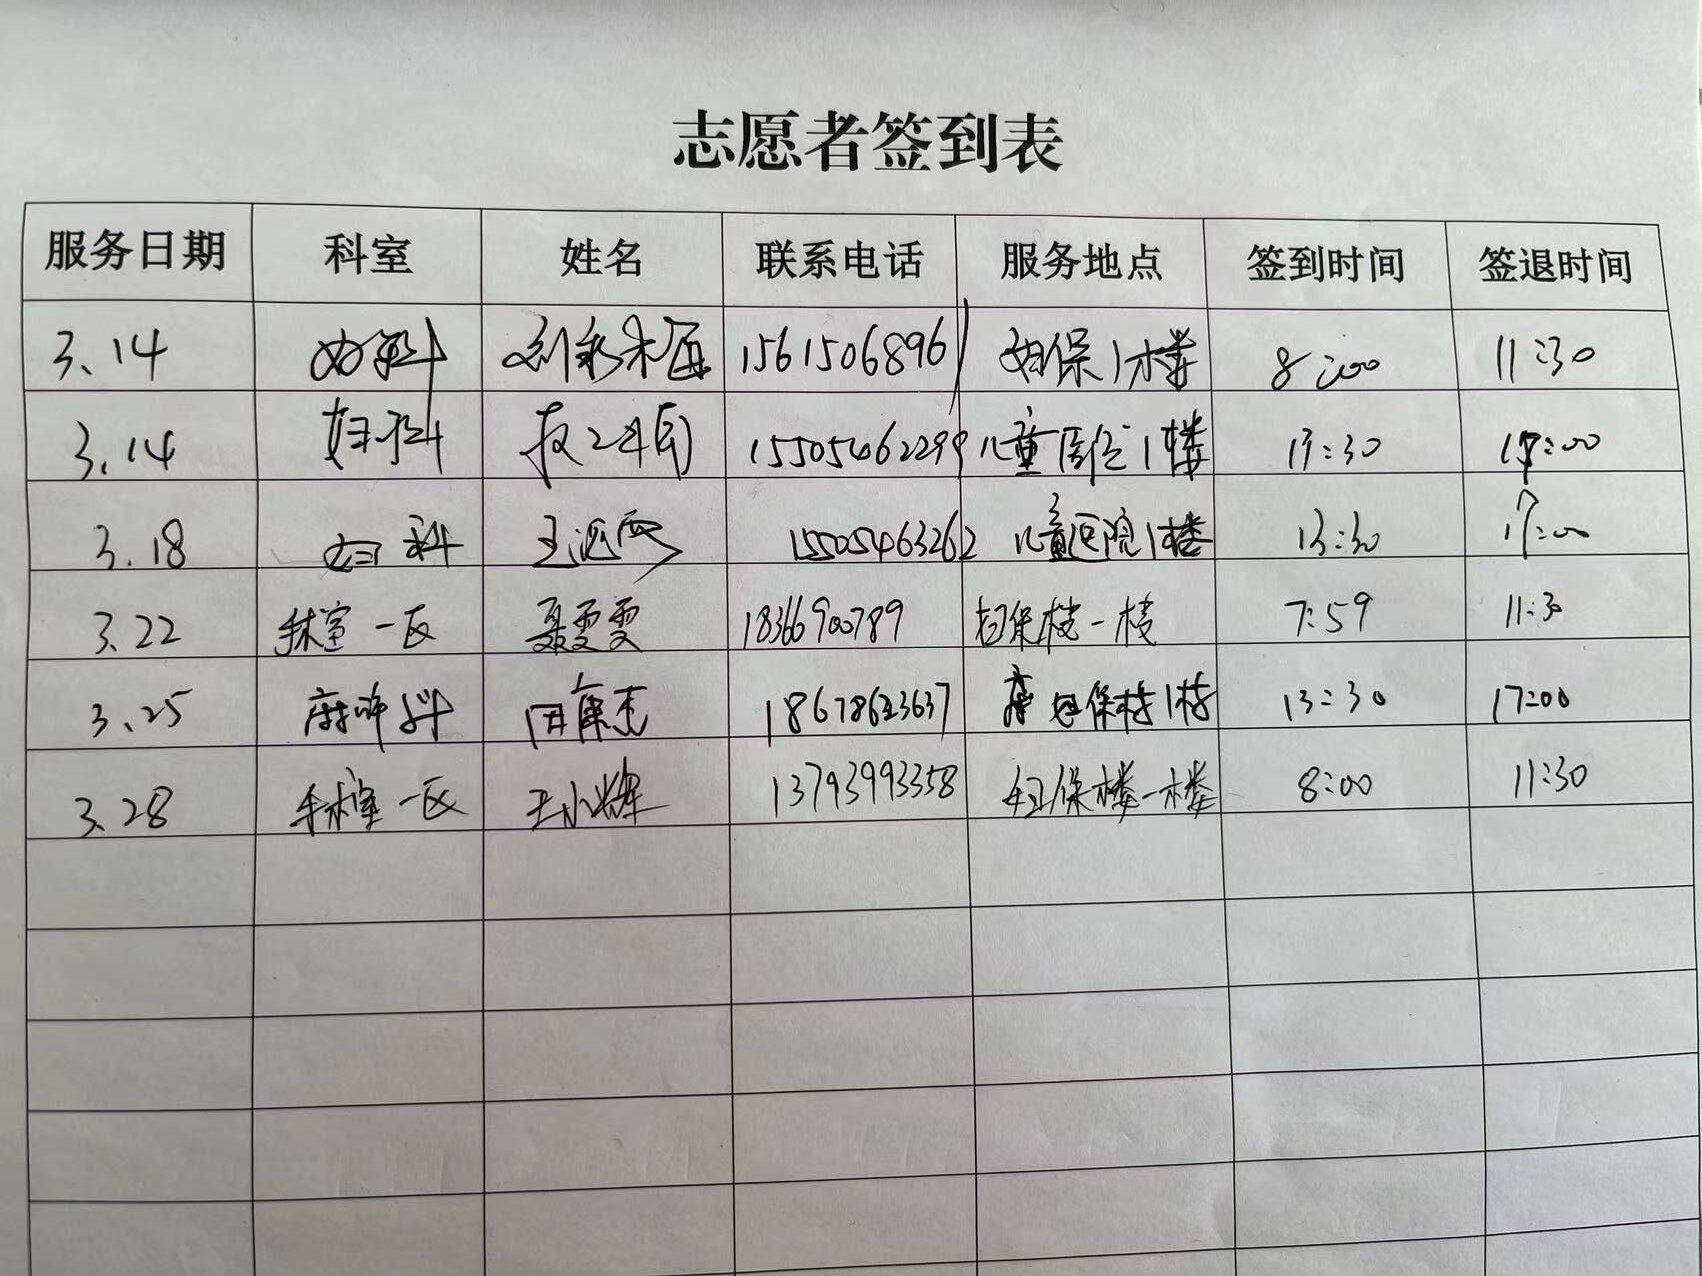 志愿者签到表
服务日期 科室 姓名 联系电话 服务地点 签到时间 签退时间
3.14 妇科 15615068961 妇保1楼 8:00 11:30
3.14 妇科 15505462299 儿童医院1楼 13:30 17:00
3.18 妇科 15505463262 儿童医院1楼 13:30 17:00
3.22 手术室一区 聂雯雯 18366900789 妇保楼一楼 7:59 11:30
3.25 麻醉科 田康杰 18678623637 妇保楼1楼 13:30 17:00
3.28 手术室一区 王小辉 13793993358 妇保楼一楼 8:00 11:30